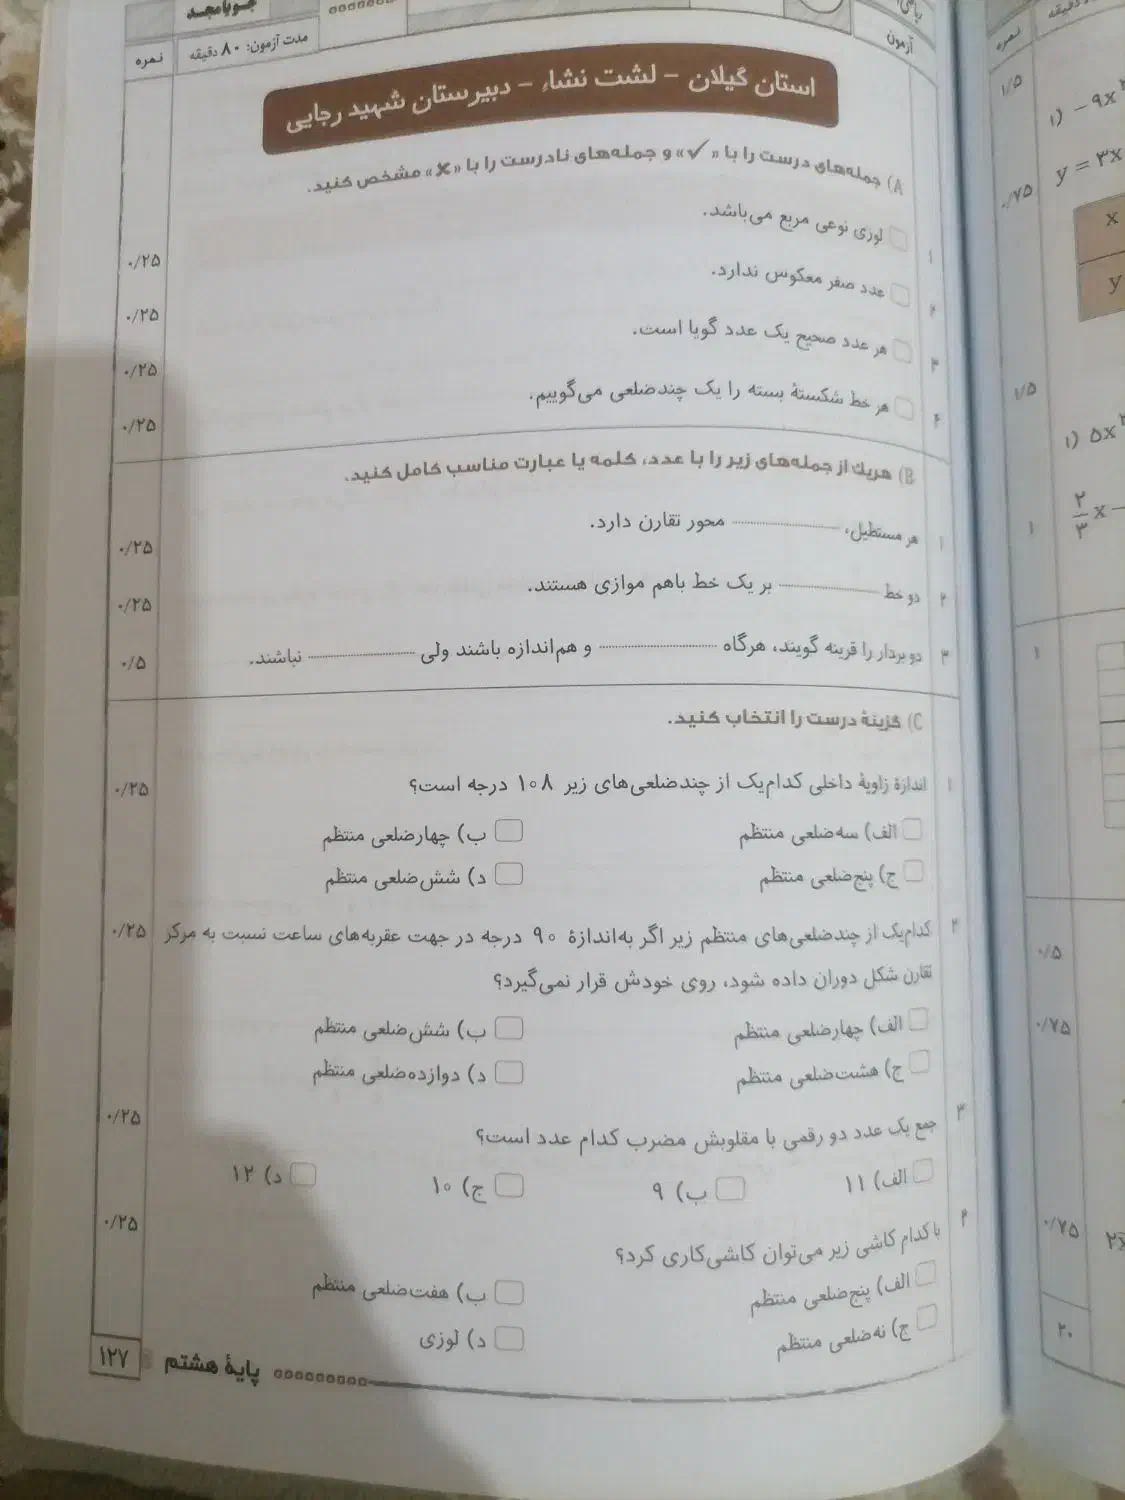 جویامجد
نمره
مدت آزمون: ۸۰ دقیقه
آزمون
استان گیلان - لشت نشاء - دبیرستان شهید رجایی
A) جمله‌های درست را با «✓» و جمله‌های نادرست را با «✗» مشخص کنید.
۱ لوزی نوعی مربع می‌باشد. ۰/۲۵
۲ عدد صفر معکوس ندارد. ۰/۲۵
۳ هر عدد صحیح یک عدد گویا است. ۰/۲۵
۴ هر خط شکستهٔ بسته را یک چندضلعی می‌گوییم. ۰/۲۵
B) هریک از جمله‌های زیر را با عدد، کلمه یا عبارت مناسب کامل کنید.
۱ هر مستطیل، .......... محور تقارن دارد. ۰/۲۵
۲ دو خط .......... بر یک خط باهم موازی هستند. ۰/۲۵
۳ دو بردار را قرینه گویند، هرگاه .......... و هم‌اندازه باشند ولی .......... نباشند. ۰/۵
C) گزینهٔ درست را انتخاب کنید.
۱ اندازهٔ زاویهٔ داخلی کدام‌یک از چندضلعی‌های زیر ۱۰۸ درجه است؟ ۰/۲۵
الف) سه‌ضلعی منتظم ب) چهارضلعی منتظم
ج) پنج‌ضلعی منتظم د) شش‌ضلعی منتظم
۲ کدام‌یک از چندضلعی‌های منتظم زیر اگر به‌اندازهٔ ۹۰ درجه در جهت عقربه‌های ساعت نسبت به مرکز ۰/۲۵
تقارن شکل دوران داده شود، روی خودش قرار نمی‌گیرد؟
الف) چهارضلعی منتظم ب) شش‌ضلعی منتظم
ج) هشت‌ضلعی منتظم د) دوازده‌ضلعی منتظم
۳ جمع یک عدد دو رقمی با مقلوبش مضرب کدام عدد است؟ ۰/۲۵
الف) ۱۱ ب) ۹ ج) ۱۰ د) ۱۲
۴ با کدام کاشی زیر می‌توان کاشی‌کاری کرد؟ ۰/۲۵
الف) پنج‌ضلعی منتظم ب) هفت‌ضلعی منتظم
ج) نه‌ضلعی منتظم د) لوزی
پایهٔ هشتم ۱۲۷
نمره
۱/۵
۱) −۹x
۰/۷۵
y = ۳x
x
y
۱/۵
۱) ۵x
۱
۲/۳ x −
۱
۰/۵
۰/۷۵
۰/۷۵
۲x
۲۰